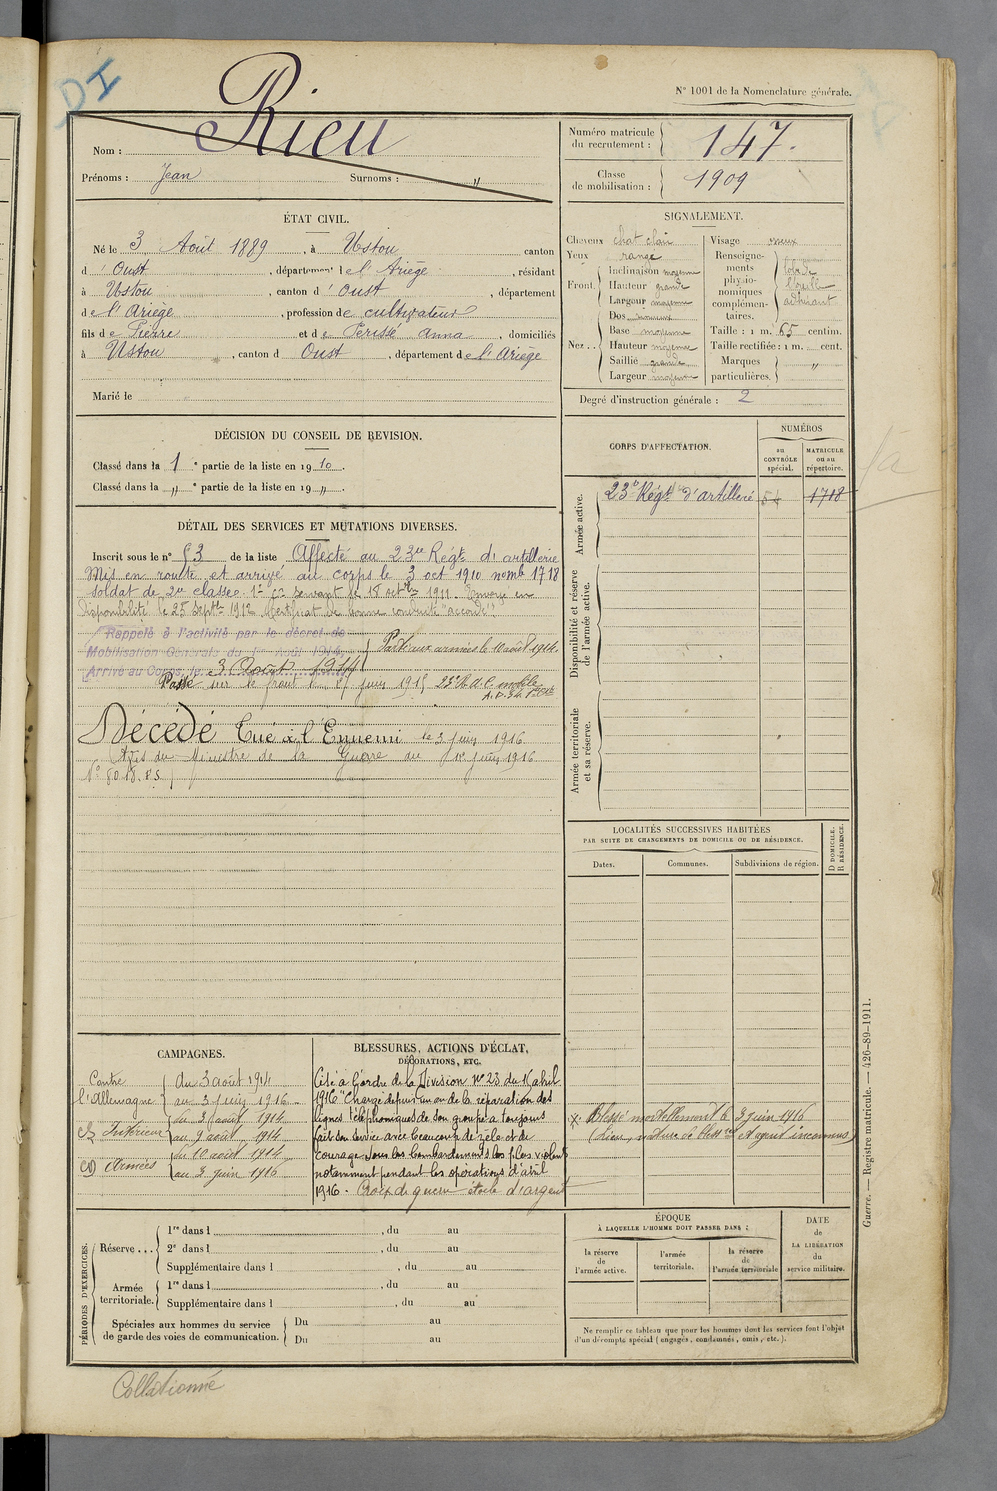 DI
N° 1001 de la Nomenclature générale.
Nom : Rieu
Prénoms : Jean Surnoms : "
Numéro matricule du recrutement : 147.
Classe de mobilisation : 1909
ÉTAT CIVIL.
Né le 3 Août 1889, à Ustou canton
d'Oust, département de l'Ariège, résidant
à Ustou, canton d'Oust, département
de l'Ariège, profession de cultivateur
fils de Pierre et de Perissé Anna, domiciliés
à Ustou, canton d Oust, département de l'Ariège
Marié le
SIGNALEMENT.
Cheveux chat clair
Yeux range
Front. Inclinaison moyenne
Hauteur grande
Largeur moyenne
Nez.. Dos
Base moyenne
Hauteur moyenne
Saillie grande
Largeur moyenne
Visage osseux
Renseignements physionomiques complémentaires. lobe de l'oreille adhérant
Taille : 1 m. 65 centim.
Taille rectifiée : 1 m. cent.
Marques particulières. "
Degré d'instruction générale : 2
DÉCISION DU CONSEIL DE REVISION.
Classé dans la 1e partie de la liste en 1910.
Classé dans la " e partie de la liste en 19 ".
CORPS D'AFFECTATION.
NUMÉROS
au CONTRÔLE spécial.
MATRICULE ou au répertoire.
Armée active.
23e Régt d'artillerie 1718
Disponibilité et réserve de l'armée active.
Armée territoriale et sa réserve.
DÉTAIL DES SERVICES ET MUTATIONS DIVERSES.
Inscrit sous le n° 53 de la liste Affecté au 23me Régt d'artillerie
Mis en route et arrivé au corps le 3 oct 1910 nomb 1718
soldat de 2me classe. 1er cr servant le 18 octbre 1911. Envoyé en
disponibilité le 25 septbre 1912 Certificat de bonne conduite "accordé".
Rappelé à l'activité par le décret de
Mobilisation Générale du 1er Août 1914,
Arrivé au Corps le 3 Août 1914
Parti aux armées le 10 août 1914.
Passé sur le front le juin 1915
Décédé Tué à l'Ennemi le 3 juin 1916
Avis du Ministre de la Guerre du juin 1916
LOCALITÉS SUCCESSIVES HABITÉES
PAR SUITE DE CHANGEMENTS DE DOMICILE OU DE RÉSIDENCE.
D DOMICILE. R RÉSIDENCE.
Dates. Communes. Subdivisions de région.
x. Blessé mortellement le 3 juin 1916
(Lieu, nature de bless re et agent inconnus)
CAMPAGNES.
Contre l'Allemagne
du 3 août 1914
au 3 juin 1916
Intérieur
du 3 août 1914
au 9 août 1914
Armées
du 10 août 1914
au 3 juin 1916
BLESSURES, ACTIONS D'ÉCLAT,
DÉCORATIONS, ETC.
Cité à l'ordre de la Division n° 23 du 16 abril
1916 "Chargé depuis un an de la réparation des
lignes téléphoniques de son groupe a toujours
fait son service avec beaucoup de zèle et de
courage sous les bombardements les plus violents
notamment pendant les opérations d'avril
1916. Croix de guerre étoile d'argent
PÉRIODES D'EXERCICES.
Réserve... 1re dans l , du au
2e dans l , du au
Supplémentaire dans l , du au
Armée territoriale. 1re dans l , du au
Supplémentaire dans l , du au
Spéciales aux hommes du service de garde des voies de communication. Du au
Du au
ÉPOQUE
À LAQUELLE L'HOMME DOIT PASSER DANS :
la réserve de l'armée active.
l'armée territoriale.
la réserve de l'armée territoriale
DATE de LA LIBÉRATION du service militaire.
Ne remplir ce tableau que pour les hommes dont les services font l'objet
d'un décompte spécial (engagés, condamnés, omis, etc.).
Guerre. — Registre matricule. — 426-89-1911.
Collationné